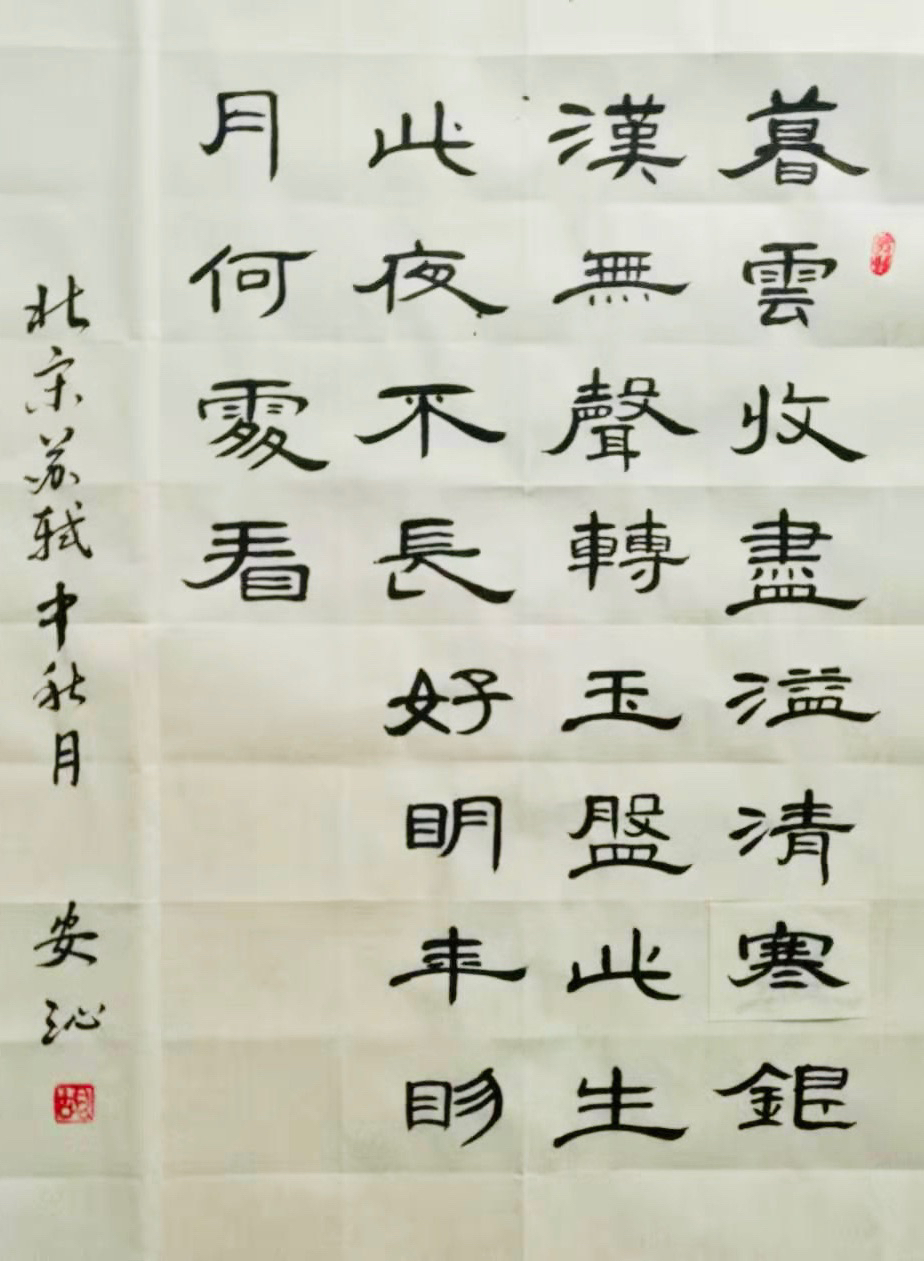 暮雲收盡溢清寒銀
漢無聲轉玉盤此生
此夜不長好明年明
月何處看
北宋苏轼中秋月
安沁